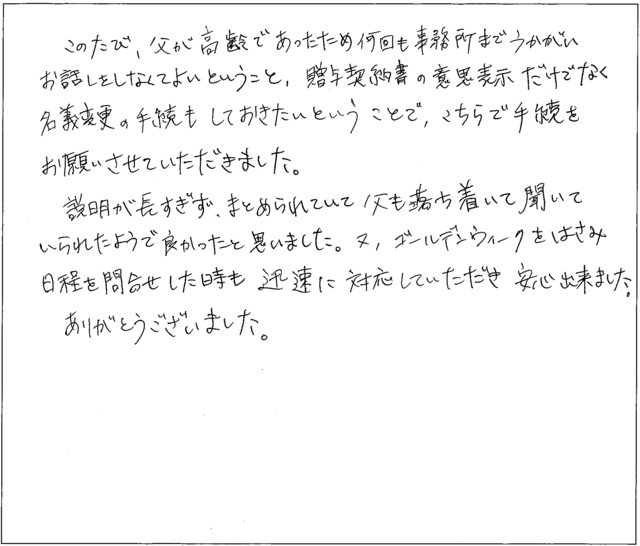 このたび、父が高齢であったため何回も事務所までうかがい
お話しをしなくてよいということ、贈与契約書の意思表示だけでなく
名義変更の手続もしておきたいということで、こちらで手続を
お願いさせていただきました。
説明が長すぎず、まとめられていて父も落ち着いて聞いて
いられたようで良かったと思いました。又、ゴールデンウィークをはさみ
日程を問合せした時も迅速に対応していただき安心出来ました。
ありがとうございました。